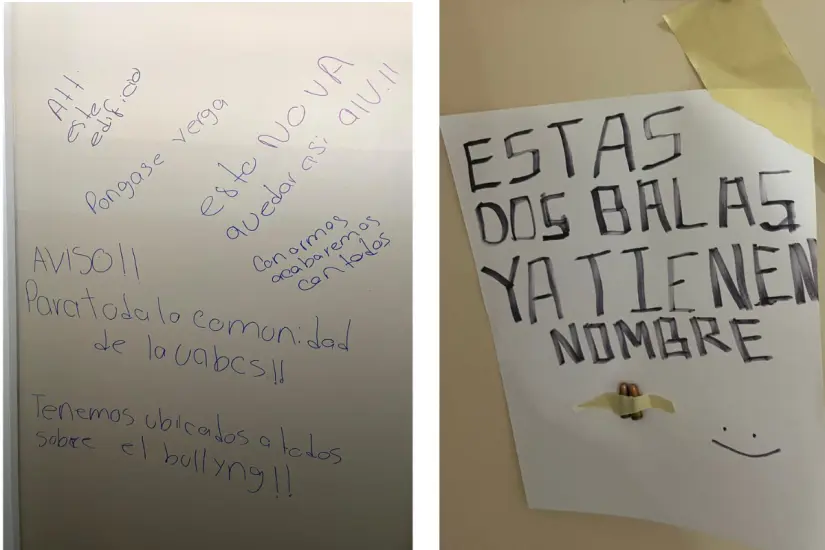 Att:
este
edificio
Pongase verga
esto NO VA
quedar asi AIV.!!
Con armas
acabaremos
con todos
AVISO!!
Para toda la comunidad
de la uabcs!!
Tenemos ubicados a todos
sobre el bullyng!!
ESTAS
DOS BALAS
YA TIENEN
NOMBRE